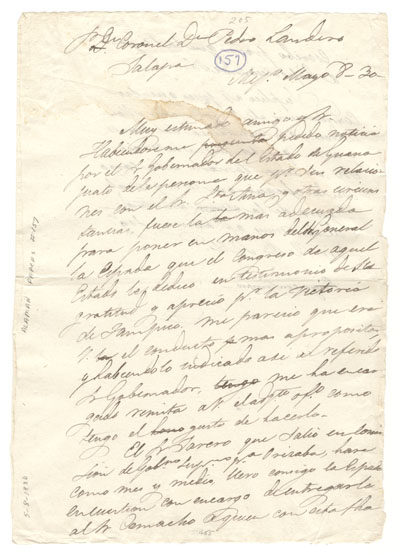 205
Sr. Dn. Coronel Dn. Pedro Landero
157
Jalapa
Mejo. Mayo 8-30
Muy estimado amigo y Sr.
Habiendoseme pedido noticia
por el Sr. Gobernador del Estado de Guana
juato de la persona que pr. sus relacio
nes con el Sr. Santana, y otras circuns
tancias, fuese la mas adecuada
para poner en manos del General
la Espada que el Congreso de aquel
Estado le dedicó en testimonio de su
gratitud y aprecio pr. la victoria
de Tampico, me pareció que era
V. el conducto mas aproposito,
y habiendolo indicado asi el referido
Sr. Gobernador, me ha encar
gado remita a V. el adjto. ofo. como
tengo el gusto de hacerlo.
El Sr. Farero que salió en comi
sion de Orizaba, hará
como mes y medio, llevó consigo la Espada
en cuestion con encargo de entregarla
al Sr. Camacho a quien con esta fha
ALAMAN PAPERS #157
5-8-1830